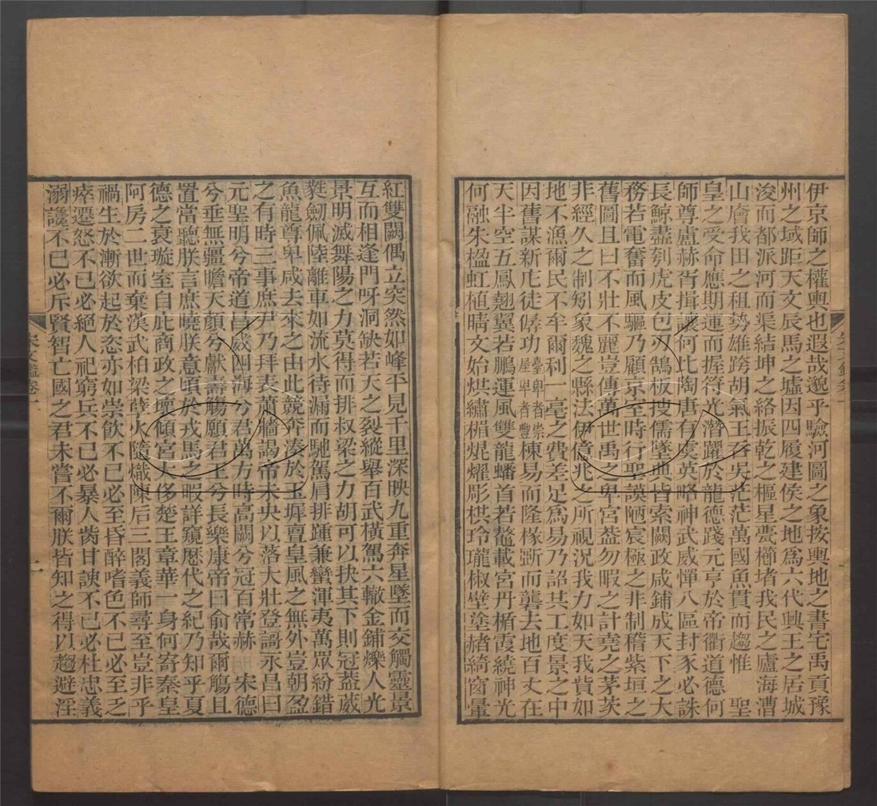 伊京師之權輿也遐哉邈乎驗河圖之象按輿地之書宅禹貢豫
州之域距天文辰馬之墟因四履建侯之地爲六代興王之居城
浚而都派河而渠結坤之絡振乾之樞星甍櫛堵我民之廬海漕
山庾我田之租勢雄跨胡氣王吞吳茫茫萬國魚貫而趨惟 聖
皇之受命應期運而握符光潛躍於龍德踐元亨於帝衢道德何
師尊盧赫胥揖讓何比陶唐有虞英略神武威憚八區封豕必誅
長鯨盡刳虎皮包刃鵠板搜儒墜典皆索闕政咸鋪成天下之大
務若電奮而風驅乃顧京室時行聖謨陋宸極之非制稽紫垣之
舊圖且曰不壯不麗豈傳萬世禹之卑宮盍勿暇之計堯之茅茨
非經久之制矧象魏之縣法伊億兆之所視況我力如天我貲如
地不漁爾民不牟爾利一毫之費差足爲易乃詔其工度景之中
因舊謀新庀徒僝功臺卑者崇屋卑者豐棟易而隆椽斲而礱去地百丈在
天半空五鳳翹翼若鵬運風雙龍蟠首若鼇載宮丹楯霞繞神光
何融朱楹虹植晴文始烘繡楣焜燿彫栱玲瓏椒壁塗赭綺窗暈
紅雙闕偶立突然如峰平見千里深映九重奔星墜而交觸靈景
互而相逢門呀洞缺若天之裂縱舉百武橫駕六轍金鋪爍人光
景明滅舞陽之力莫得而排叔梁之力胡可以抉其下則冠蓋葳
蕤劍佩陸離車如流水待漏而馳駕肩排踵兼蠻渾夷萬眾紛錯
魚龍尊卑咸去來之由此競奔湊於玉墀亶皇風之無外豈朝盈
之有時三事庶尹乃拜表蕭牆謁帝未央以落大壯登謌永昌曰
元聖明兮帝道昌威四海兮君萬方時高闕兮冠百常赫 宋德
兮垂無疆瞻天顏兮獻壽觴願君王兮長樂康帝曰俞哉爾觴且
置當聽朕言庶曉朕意頃於戎馬之暇詳窺歷代之紀乃知乎夏
德之衰璇室自庇商政之壞傾宮大侈楚王章華一身何寄秦皇
阿房二世而棄漢武柏梁孽火隨熾陳后三閣義師尋至豈非乎
禍生於漸欲起於恣亦如崇飲不已必至昏醉嗜色不已必至乏
瘁遷怒不已必絕人祀窮兵不已必暴人胔甘諛不已必杜忠義
溺讒不已必斥賢智亡國之君未嘗不爾朕皆知之得以趨避淫